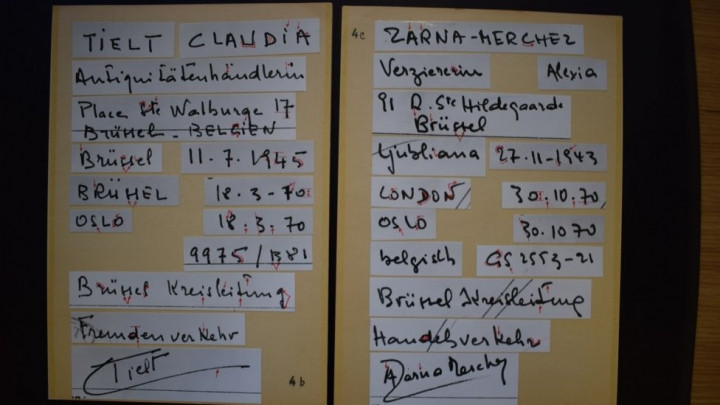 TIELT CLAUDIA
Antiquitätenhändlerin
Place Ste Walburge 17
Brüssel - BELGIEN
Brüssel 11.7.1945
BRÜHEL 18.3-70
OSLO 18.3.70
9975/B81
Brüssel Kreisleitung
Fremdenverkehr
Tielt
4b
4c
ZARNA-MERCHEZ
Verziererin Alexia
91 R. Ste Hildegaarde
Brüssel
Ljubliana 27.11-1943
LONDON 30.10.70
OSLO 30.1070
belgisch GS 2553-21
Brüssel Kreisleitung
Handelsverkehr